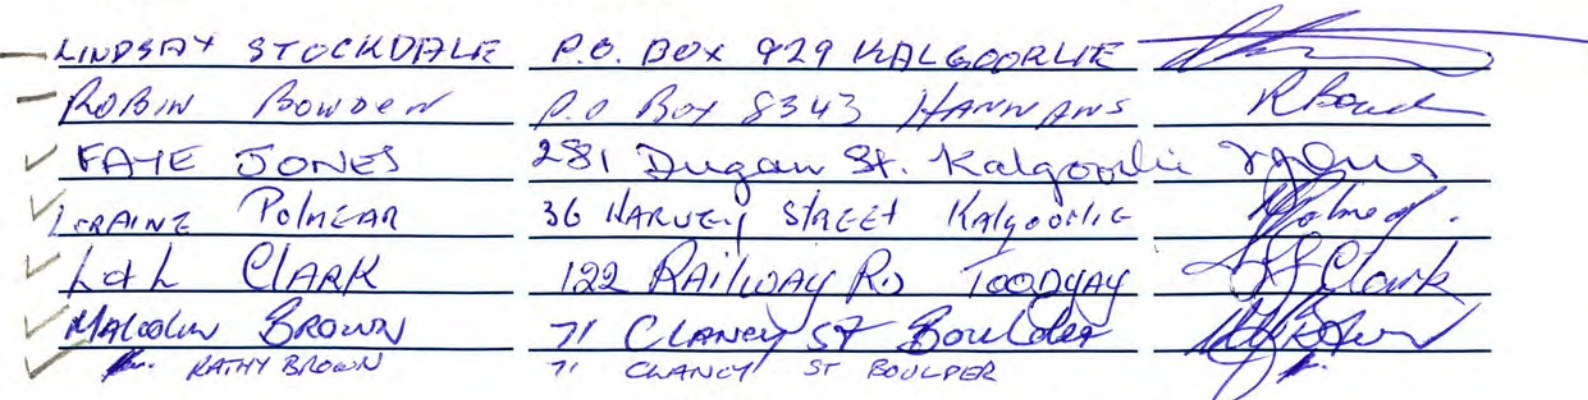 LINDSAY STOCKDALE P.O. BOX 929 KALGOORLIE
ROBIN BOWDEN P.O BOX 8343 HANNANS R Bowd
FAYE JONES 281 Dugan St. Kalgoorlie
LORAINE POLMEAR 36 HARVEY STREET Kalgoorlie
L & L CLARK 122 RAILWAY RD TOODYAY Clark
MALCOLM BROWN 71 CLANCY ST Boulder
KATHY BROWN 71 CLANCY ST BOULDER